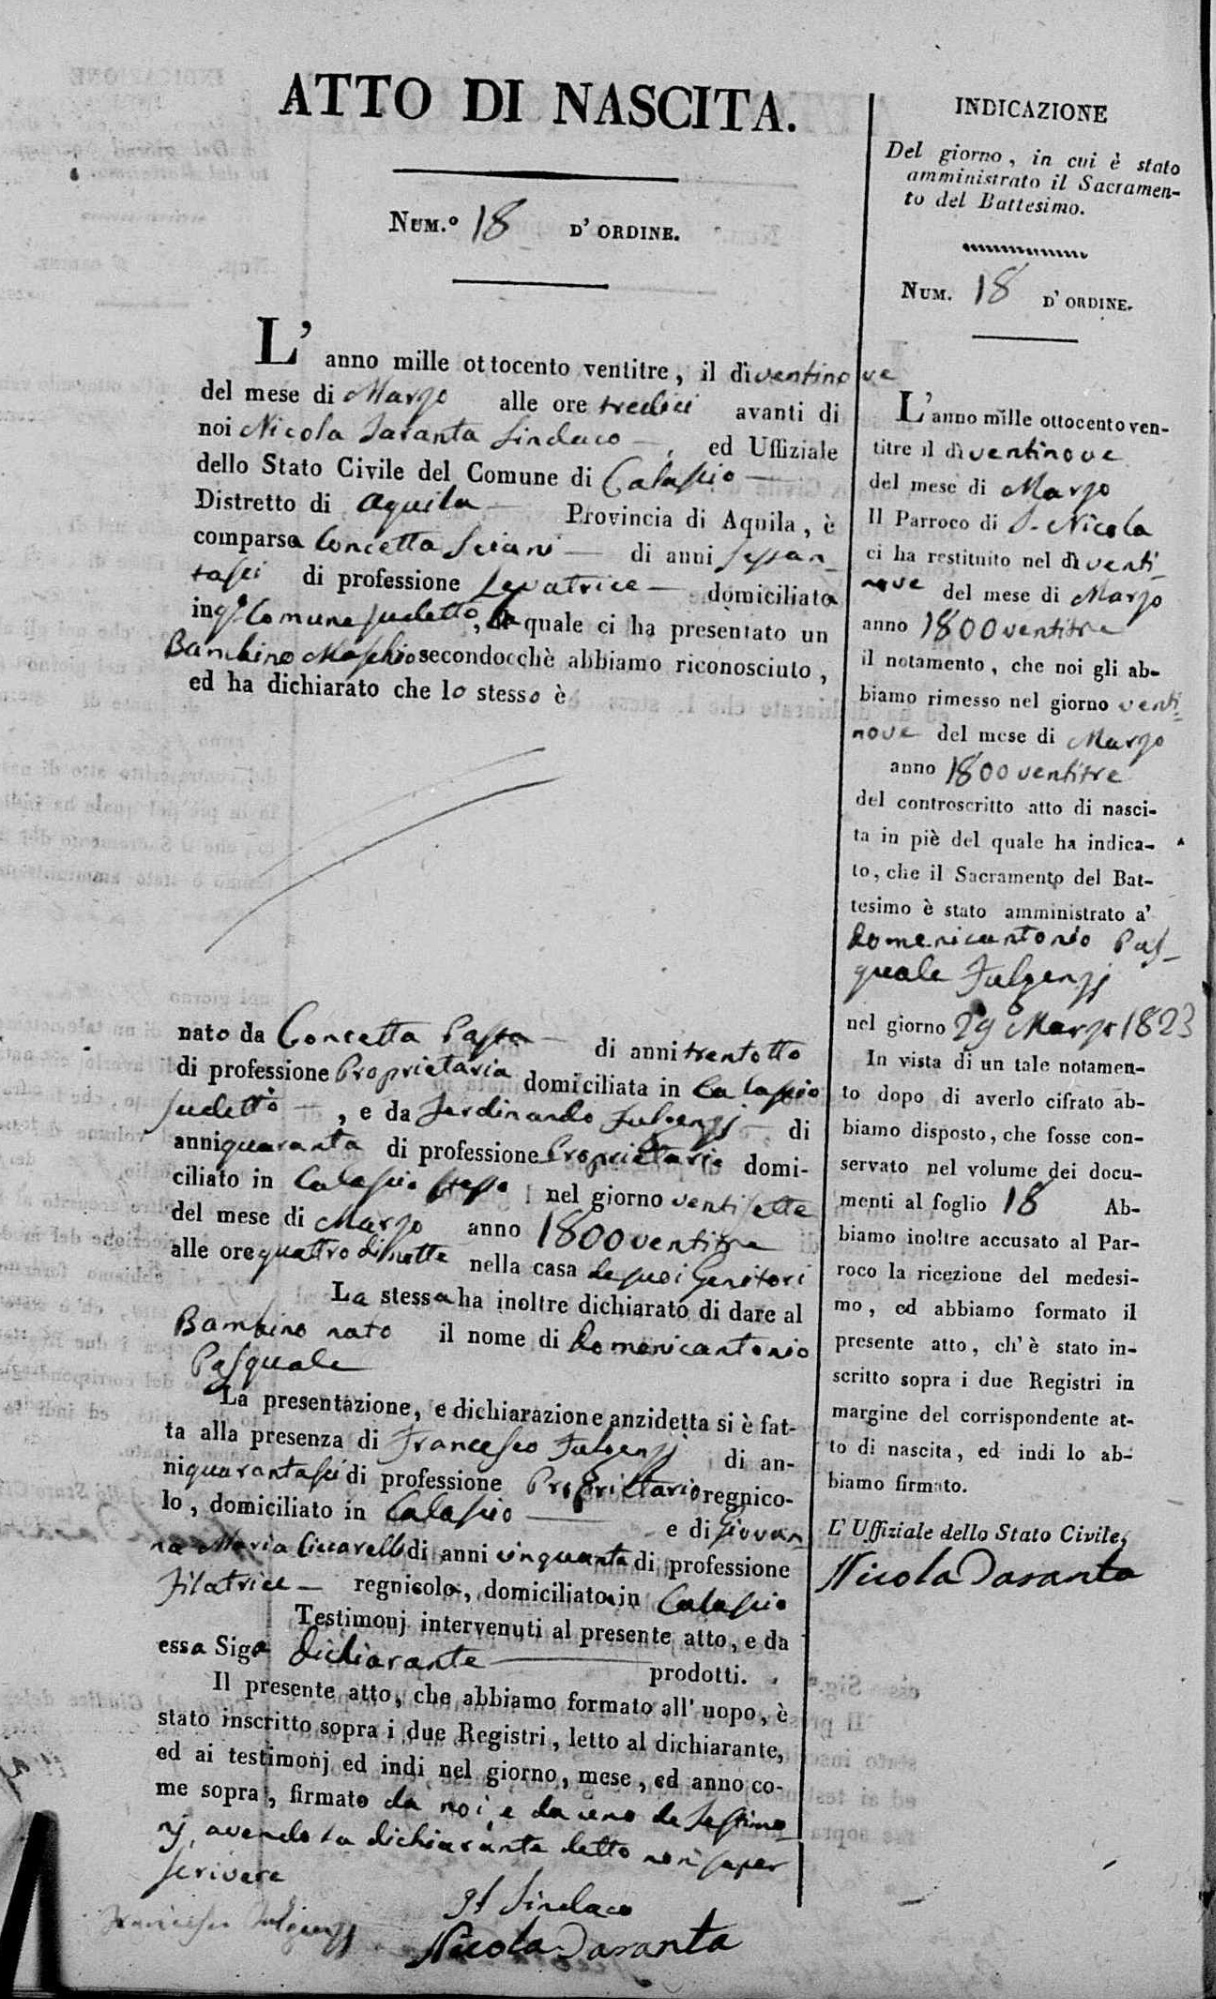 ATTO DI NASCITA.
NUM.° 18 D' ORDINE.
L' anno mille ottocento ventitre, il dì ventinove
del mese di Marzo alle ore tredici avanti di
noi Nicola Taranta Sindaco — , ed Uffiziale
dello Stato Civile del Comune di Calascio —
Distretto di Aquila — Provincia di Aquila, è
comparsa Concetta — di anni sessan-
tasei di professione Levatrice — domiciliata
in q.to Comune sudetto, la quale ci ha presentato un
Bambino Maschio secondocchè abbiamo riconosciuto,
ed ha dichiarato che lo stesso è
nato da Concetta — di anni trentotto
di professione Proprietaria domiciliata in Calascio
sudetto — , e da Ferdinando Fulgenzj — , di
anni quaranta di professione Proprietario domi-
ciliato in Calascio stesso nel giorno ventisette
del mese di Marzo anno 1800 ventitre
alle ore quattro di notte nella casa de suoi Genitori
La stessa ha inoltre dichiarato di dare al
Bambino nato il nome di Domenicantonio
Pasquale
La presentazione, e dichiarazione anzidetta si è fat-
ta alla presenza di Francesco Fulgenzj di an-
ni quarantasei di professione Proprietario regnico-
lo, domiciliato in Calascio — e di Giovan
na Maria Ciccarelli di anni cinquanta di professione
Filatrice — regnicola, domiciliata in Calascio
Testimonj intervenuti al presente atto, e da
essa Siga Dichiarante — prodotti.
Il presente atto, che abbiamo formato all' uopo, è
stato inscritto sopra i due Registri, letto al dichiarante,
ed ai testimonj ed indi nel giorno, mese, ed anno co-
me sopra, firmato da noi, e da uno de Testimo
nj, avendo la dichiarante detto non saper
scrivere
Il Sindaco
Francesco Fulgenzj
Nicola Taranta
INDICAZIONE
Del giorno, in cui è stato
amministrato il Sacramen-
to del Battesimo.
NUM. 18 D' ORDINE.
L' anno mille ottocento ven-
titre il dì ventinove
del mese di Marzo
Il Parroco di S. Nicola
ci ha restituito nel dì venti-
nove del mese di Marzo
anno 1800 ventitre
il notamento, che noi gli ab-
biamo rimesso nel giorno venti=
nove del mese di Marzo
anno 1800 ventitre
del controscritto atto di nasci-
ta in piè del quale ha indica-
to, che il Sacramento del Bat-
tesimo è stato amministrato a'
Domenicantonio Pas-
quale Fulgenzj
nel giorno 29 Marzo 1823
In vista di un tale notamen-
to dopo di averlo cifrato ab-
biamo disposto, che fosse con-
servato nel volume dei docu-
menti al foglio 18 Ab-
biamo inoltre accusato al Par-
roco la ricezione del medesi-
mo, ed abbiamo formato il
presente atto, ch' è stato in-
scritto sopra i due Registri in
margine del corrispondente at-
to di nascita, ed indi lo ab-
biamo firmato.
L' Uffiziale dello Stato Civile,
Nicola Taranta